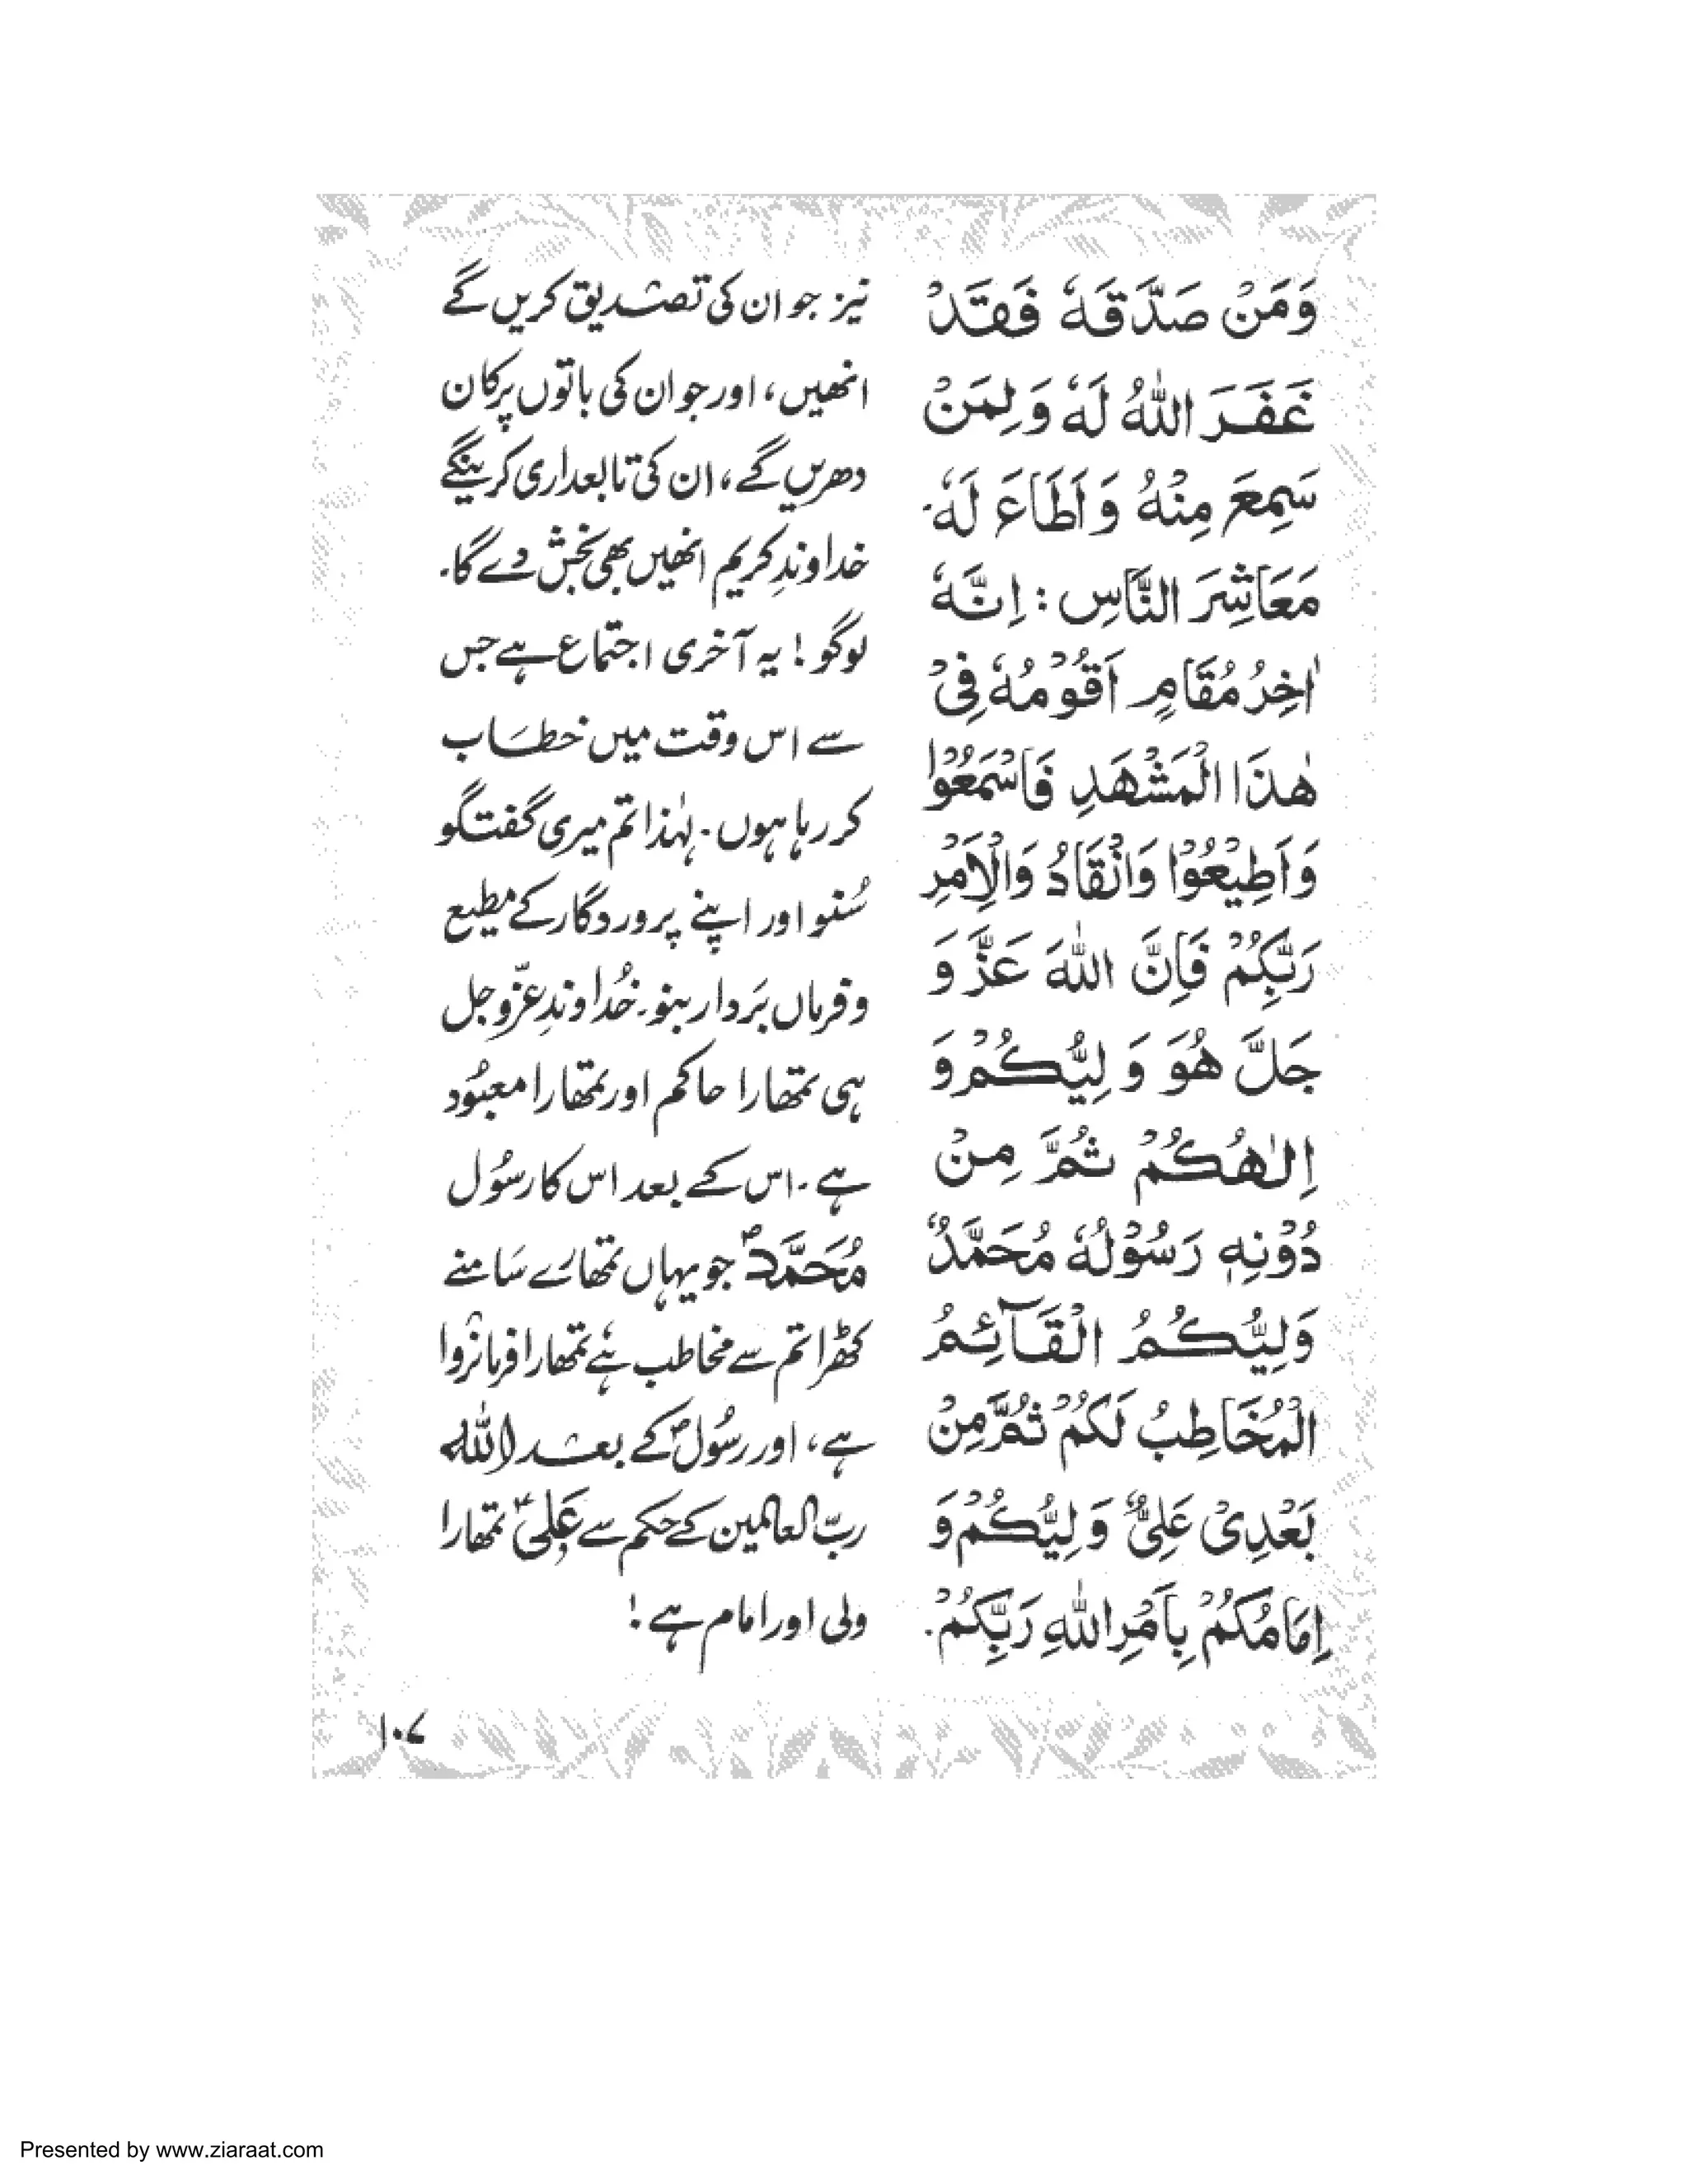 وَمَنْ صَدَّقَهٗ فَقَدْ
غَفَرَ اللّٰهُ لَهٗ وَلِمَنْ
سَمِعَ مِنْهُ وَاَطَاءَ لَهٗ.
مَعَاشِرَ النَّاسِ: اِنَّهٗ
اٰخِرُ مُقَامٍ اَقُوْمُهٗ فِیْ
هٰذَا الْمَشْهَدِ فَاسْمَعُوْا
وَاَطِیْعُوْا وَانْقَادُ وَالْاَمْرِ
رَبِّكُمْ فَاِنَّ اللّٰهَ عَزَّ وَ
جَلَّ هُوَ وَلِیُّكُمْ وَ
اِلٰهُكُمْ ثُمَّ مِنْ
دُوْنِهٖ رَسُوْلُهٗ مُحَمَّدٌ
وَلِیُّكُمُ الْقَآئِمُ
الْمُخَاطِبُ لَكُمْ ثُمَّ مِنْ
بَعْدِیْ عَلِیٌّ وَلِیُّكُمْ وَ
اِمَامُكُمْ بِاَمْرِ اللّٰهِ رَبِّكُمْ.
نیز جو ان کی تصدیق کریں گے
انھیں، اور جو ان کی باتوں پر کان
دھریں گے، ان کی تابعداری کرینگے
خداوندِ کریم انھیں بھی بخش دے گا۔
لوگو! یہ آخری اجتماع ہے جس
سے اس وقت میں خطاب
کر رہا ہوں۔ لہٰذا تم میری گفتگو
سُنو اور اپنے پروردگار کے مطیع
و فرماں بَردار بنو۔ خُداوندِ عزّوجل
ہی تمھارا حاکم اور تمھارا معبُود
ہے۔ اس کے بعد اس کا رسُول
مُحَمَّدؐ جو یہاں تمھارے سَامنے
کھڑا تم سے مخاطب ہے تمھارا فرمانروا
ہے، اور رسُولؐ کے بعد اللہ
ربّ العالمین کے حکم سے عَلیؑ تمھارا
ولی اور امام ہے!
۱۰۷
Presented by www.ziaraat.com